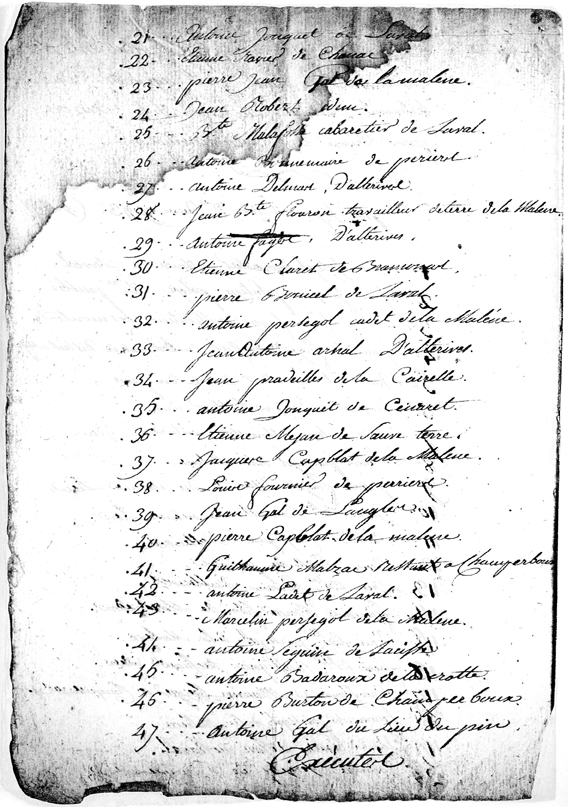 21 Antoine Jonquet de Laval
22 Etienne Favier de Chanac
23 pierre Jean Gal de la malene.
24 Jean Robert idem.
25 Bte Malafosse cabaretier de Laval.
26 Antoine Bonnemaire de perieret
27 antoine Delmas, D'alterives
28 Jean Bte flouron travailleur de terre de la Malene.
29 Antoine D'alterives.
30 Etienne Claret de
31 pierre Bonicel de Laval
32 antoine persegol cadet de la Malène.
33 Jean Antoine arnal D'alterives.
34 Jean pradeilles de la Cairelle.
35 antoine Jonquit de Cenaret.
36 Etienne Mejan de Sauve terre.
37 Jacques Capblat de la Malene.
38 Louis fournier de perieret
39 Jean Gal de
40 pierre Capblat de la malene
41 Guilhaume Malzac Restant a Champerboux
42 antoine Ladet de Laval.
43 Marcelin persegol de la Malene.
44 antoine Seguin de
45 antoine Badaroux de la crotte
46 pierre Burton de Champerboux
47 Antoine Gal du Lieu du pin
Exécuteol.